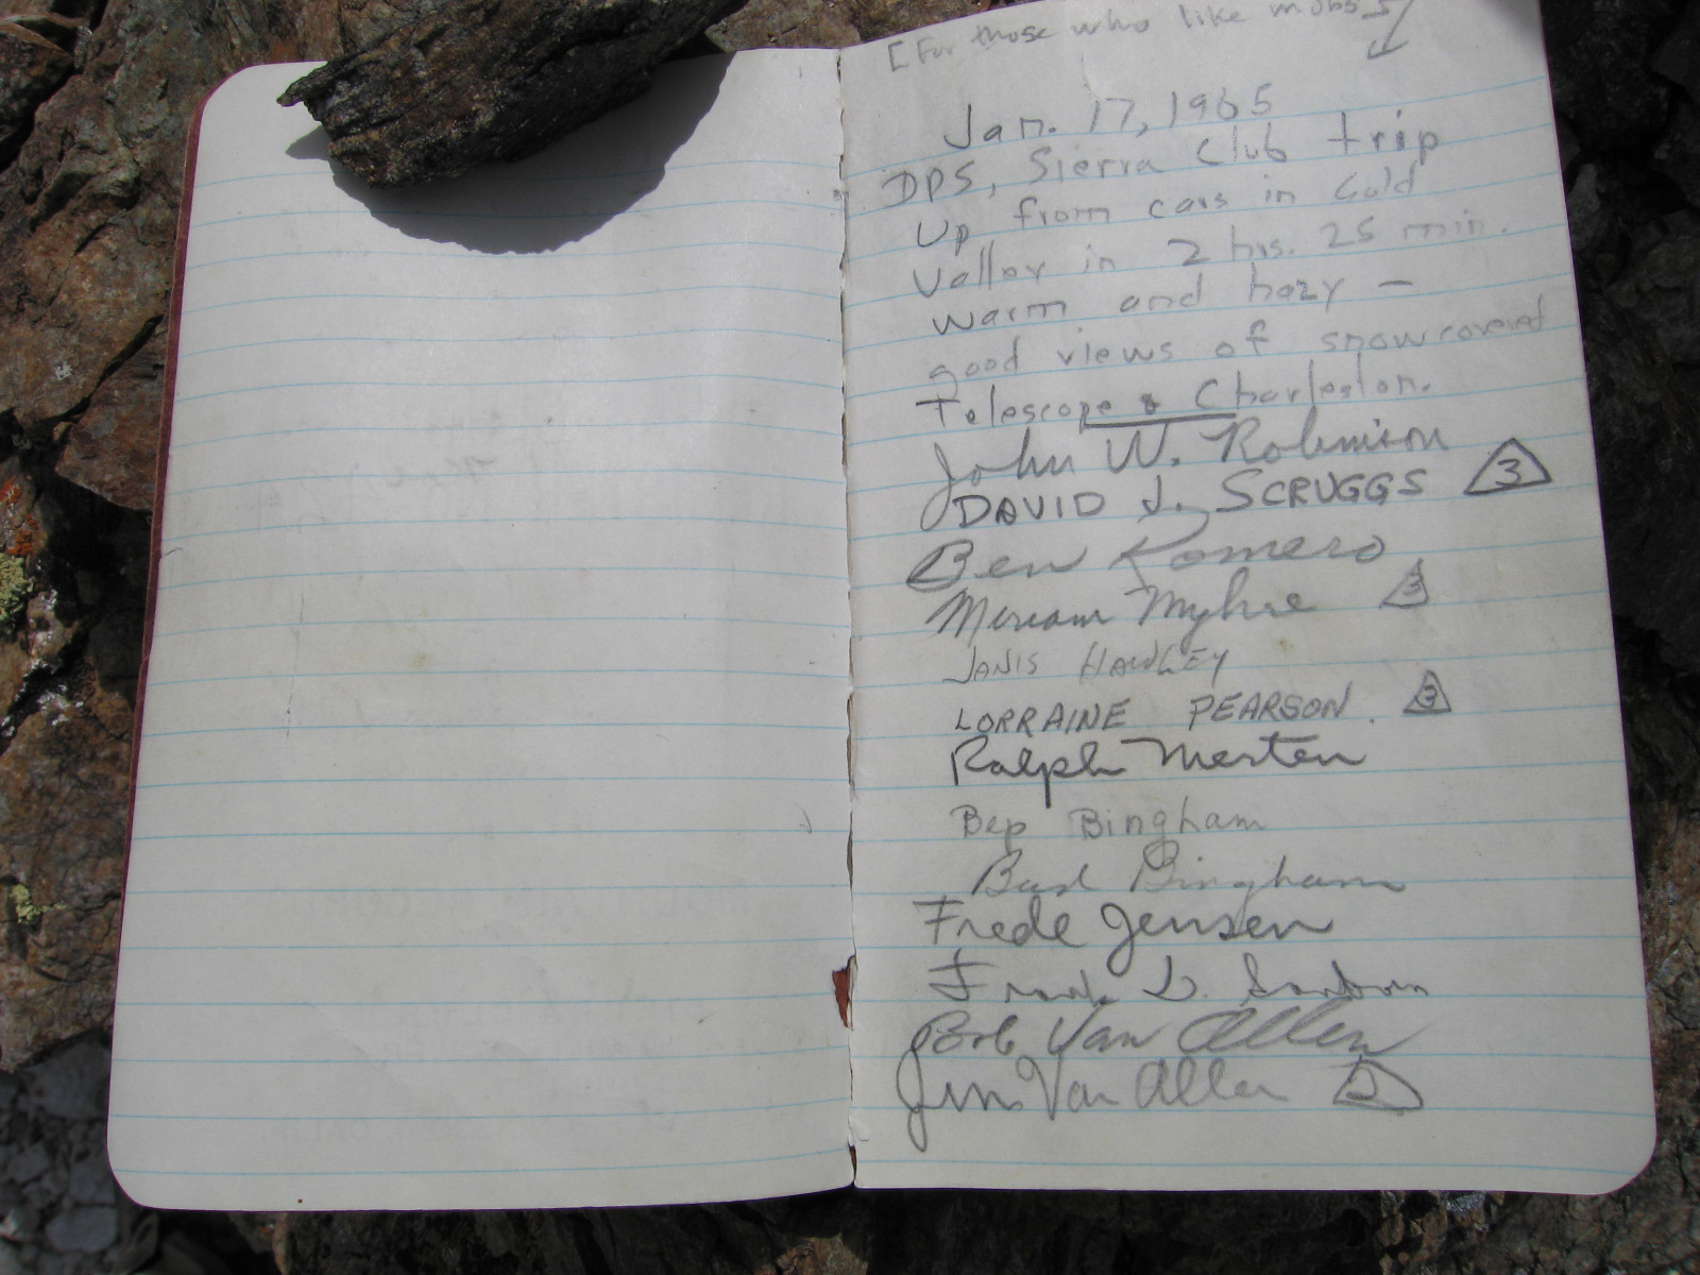 [For those who like mobs]
Jan. 17, 1965
DPS, Sierra Club trip
Up from cars in Gold
Valley in 2 hrs. 25 min.
Warm and hazy —
good views of snowcovered
Telescope & Charleston.
John W. Robinson
DAVID J. SCRUGGS 3
Ben Romero
Miriam Myhre 3
JANIS HAWLEY
LORRAINE PEARSON. 3
Ralph Merten
Bep Bingham
Bud Bingham
Frede Jensen
Frank L. Sanborn
Bob Van Allen
Jim Van Allen 2